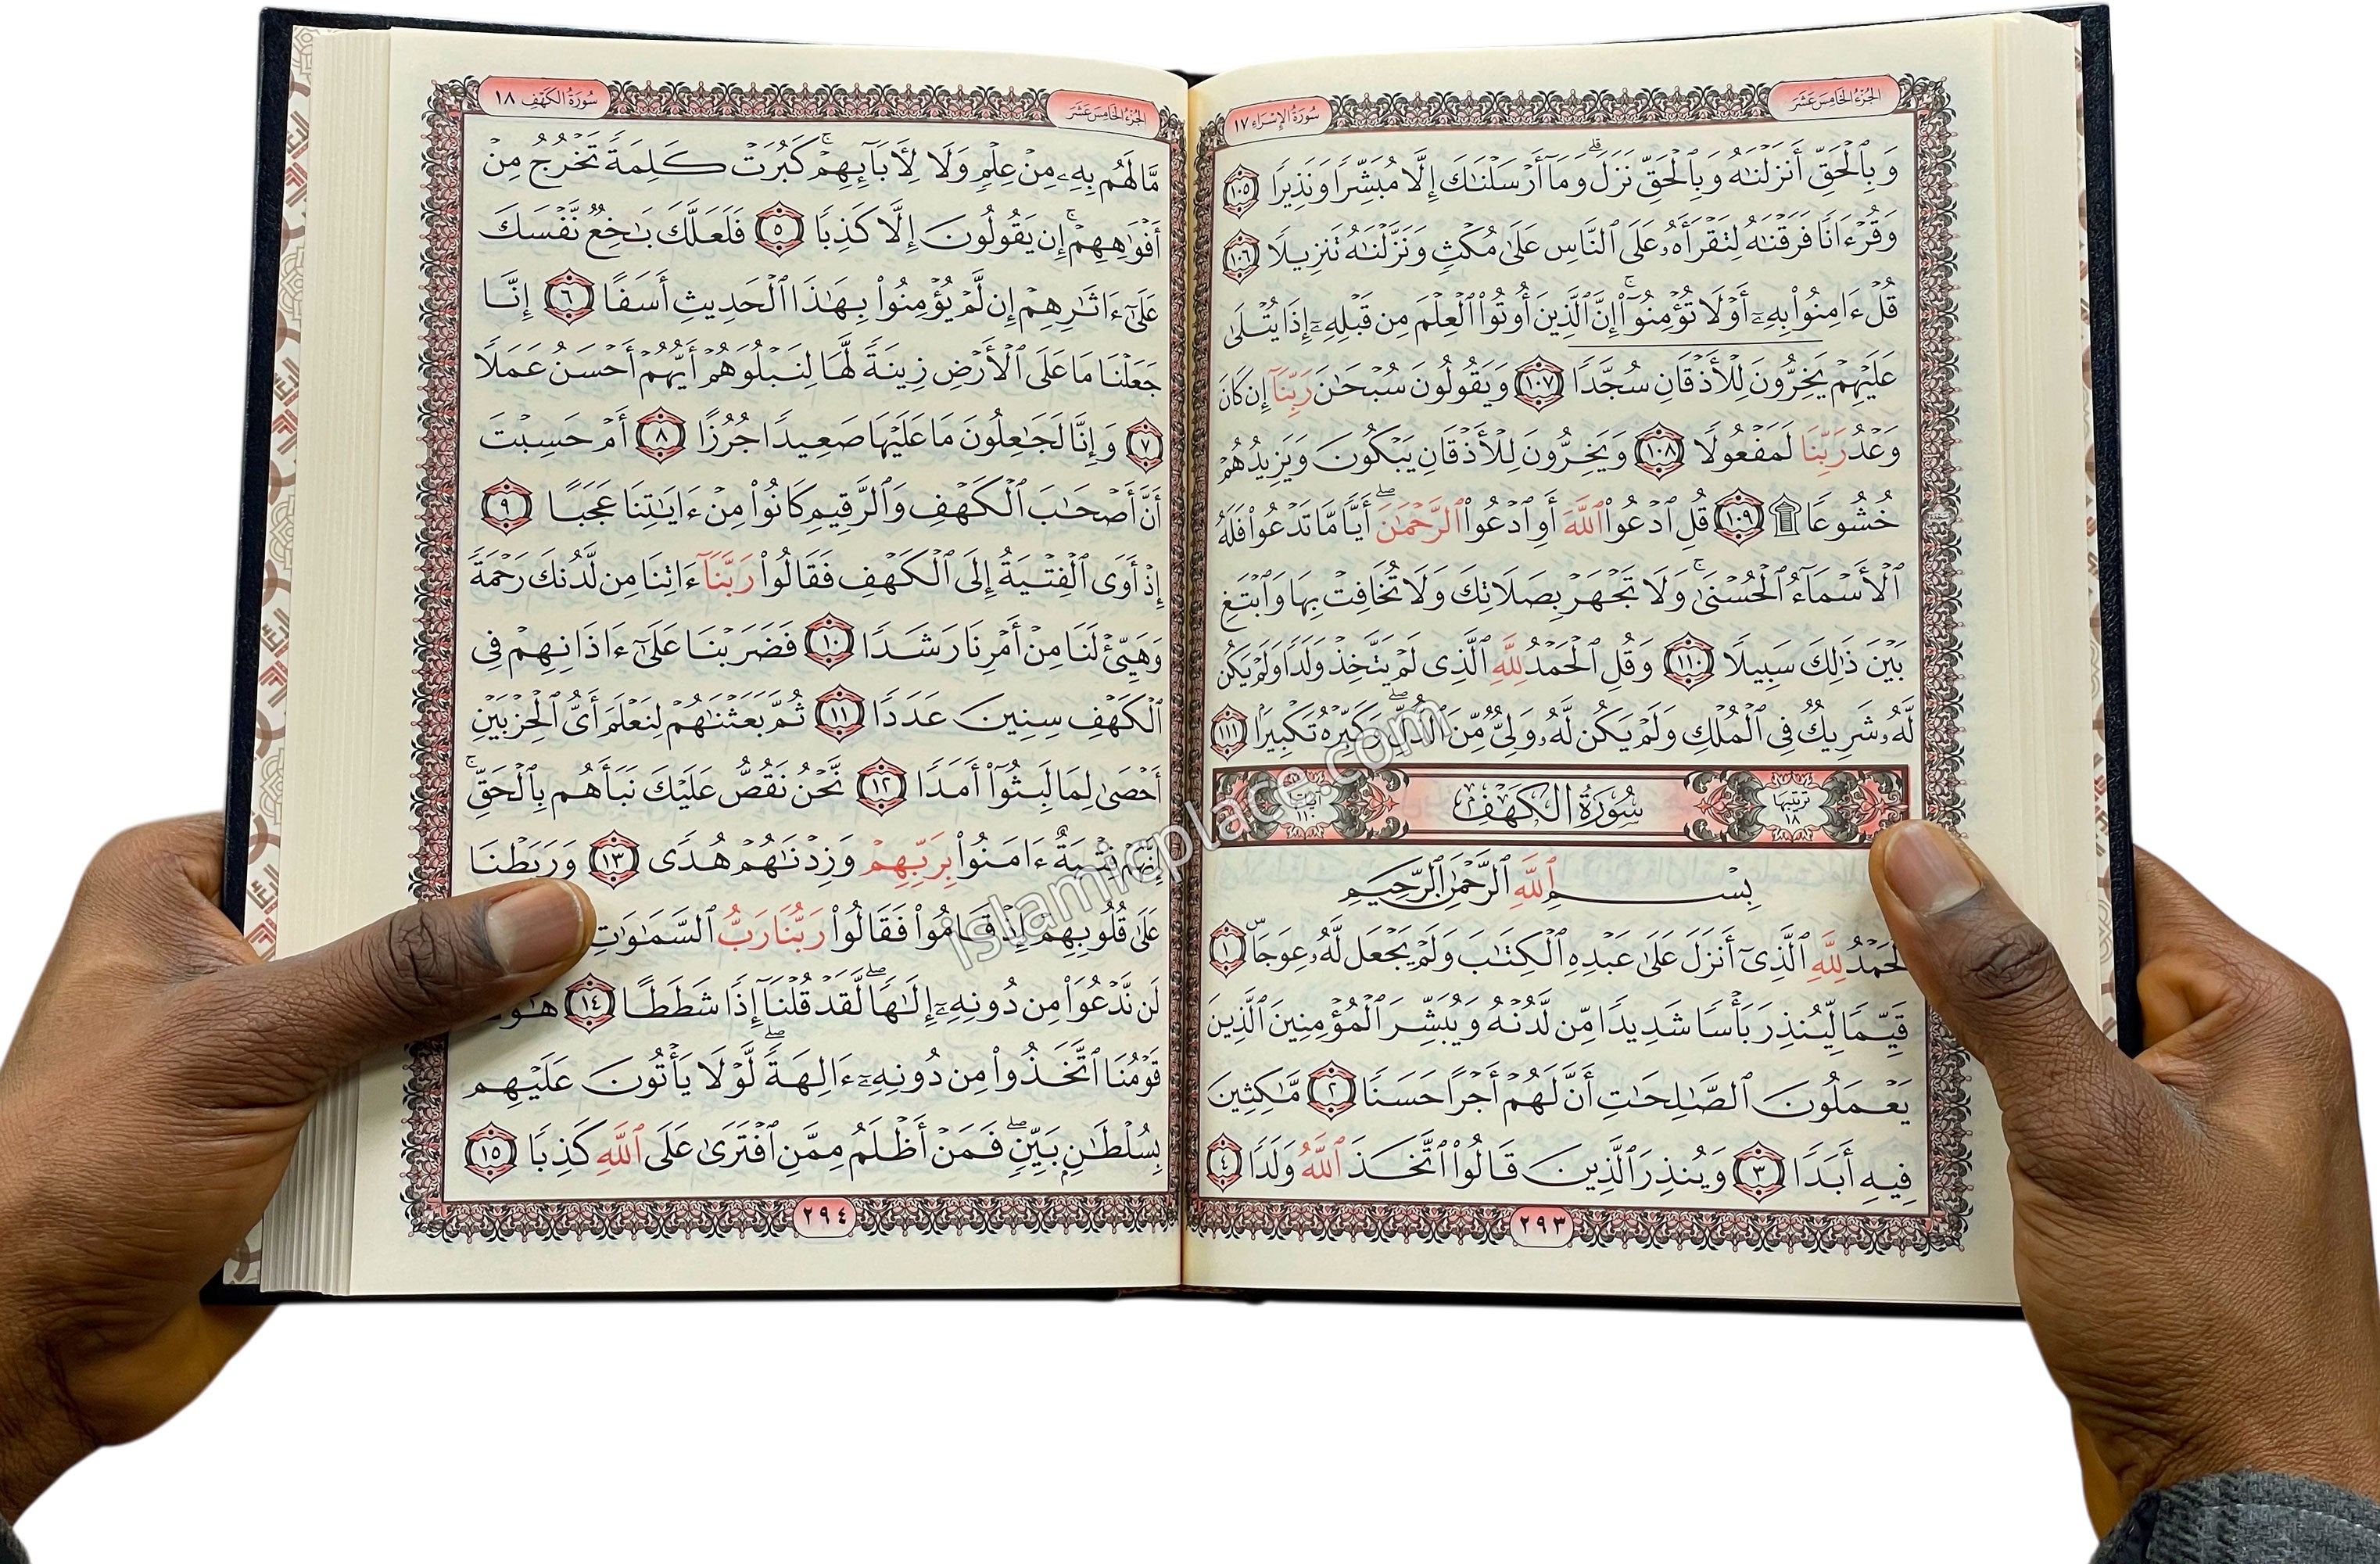 الجزء الخامس عشر
سورة الإسراء ١٧
وَبِٱلْحَقِّ أَنزَلْنَٰهُ وَبِٱلْحَقِّ نَزَلَ ۗ وَمَآ أَرْسَلْنَٰكَ إِلَّا مُبَشِّرًا وَنَذِيرًا ١٠٥
وَقُرْءَانًا فَرَقْنَٰهُ لِتَقْرَأَهُۥ عَلَى ٱلنَّاسِ عَلَىٰ مُكْثٍ وَنَزَّلْنَٰهُ تَنزِيلًا ١٠٦
قُلْ ءَامِنُوا۟ بِهِۦٓ أَوْ لَا تُؤْمِنُوٓا۟ ۚ إِنَّ ٱلَّذِينَ أُوتُوا۟ ٱلْعِلْمَ مِن قَبْلِهِۦٓ إِذَا يُتْلَىٰ
عَلَيْهِمْ يَخِرُّونَ لِلْأَذْقَانِ سُجَّدًا ١٠٧ وَيَقُولُونَ سُبْحَٰنَ رَبِّنَآ إِن كَانَ
وَعْدُ رَبِّنَا لَمَفْعُولًا ١٠٨ وَيَخِرُّونَ لِلْأَذْقَانِ يَبْكُونَ وَيَزِيدُهُمْ
خُشُوعًا ۩ ١٠٩ قُلِ ٱدْعُوا۟ ٱللَّهَ أَوِ ٱدْعُوا۟ ٱلرَّحْمَٰنَ ۖ أَيًّا مَّا تَدْعُوا۟ فَلَهُ
ٱلْأَسْمَآءُ ٱلْحُسْنَىٰ ۚ وَلَا تَجْهَرْ بِصَلَاتِكَ وَلَا تُخَافِتْ بِهَا وَٱبْتَغِ
بَيْنَ ذَٰلِكَ سَبِيلًا ١١٠ وَقُلِ ٱلْحَمْدُ لِلَّهِ ٱلَّذِى لَمْ يَتَّخِذْ وَلَدًا وَلَمْ يَكُن
لَّهُۥ شَرِيكٌ فِى ٱلْمُلْكِ وَلَمْ يَكُن لَّهُۥ وَلِىٌّ مِّنَ ٱلذُّلِّ ۖ وَكَبِّرْهُ تَكْبِيرًۢا ١١١
ترتيبها ١٨ سُورَةُ الكَهْفِ آياتها ١١٠
بِسْمِ ٱللَّهِ ٱلرَّحْمَٰنِ ٱلرَّحِيمِ
ٱلْحَمْدُ لِلَّهِ ٱلَّذِىٓ أَنزَلَ عَلَىٰ عَبْدِهِ ٱلْكِتَٰبَ وَلَمْ يَجْعَل لَّهُۥ عِوَجَا ۜ ١
قَيِّمًا لِّيُنذِرَ بَأْسًا شَدِيدًا مِّن لَّدُنْهُ وَيُبَشِّرَ ٱلْمُؤْمِنِينَ ٱلَّذِينَ
يَعْمَلُونَ ٱلصَّٰلِحَٰتِ أَنَّ لَهُمْ أَجْرًا حَسَنًا ٢ مَّٰكِثِينَ
فِيهِ أَبَدًا ٣ وَيُنذِرَ ٱلَّذِينَ قَالُوا۟ ٱتَّخَذَ ٱللَّهُ وَلَدًا ٤
٢٩٣
الجزء الخامس عشر
سورة الكهف ١٨
مَّا لَهُم بِهِۦ مِنْ عِلْمٍ وَلَا لِءَابَآئِهِمْ ۚ كَبُرَتْ كَلِمَةً تَخْرُجُ مِنْ
أَفْوَٰهِهِمْ ۚ إِن يَقُولُونَ إِلَّا كَذِبًا ٥ فَلَعَلَّكَ بَٰخِعٌ نَّفْسَكَ
عَلَىٰٓ ءَاثَٰرِهِمْ إِن لَّمْ يُؤْمِنُوا۟ بِهَٰذَا ٱلْحَدِيثِ أَسَفًا ٦ إِنَّا
جَعَلْنَا مَا عَلَى ٱلْأَرْضِ زِينَةً لَّهَا لِنَبْلُوَهُمْ أَيُّهُمْ أَحْسَنُ عَمَلًا
٧ وَإِنَّا لَجَٰعِلُونَ مَا عَلَيْهَا صَعِيدًا جُرُزًا ٨ أَمْ حَسِبْتَ
أَنَّ أَصْحَٰبَ ٱلْكَهْفِ وَٱلرَّقِيمِ كَانُوا۟ مِنْ ءَايَٰتِنَا عَجَبًا ٩
إِذْ أَوَى ٱلْفِتْيَةُ إِلَى ٱلْكَهْفِ فَقَالُوا۟ رَبَّنَآ ءَاتِنَا مِن لَّدُنكَ رَحْمَةً
وَهَيِّئْ لَنَا مِنْ أَمْرِنَا رَشَدًا ١٠ فَضَرَبْنَا عَلَىٰٓ ءَاذَانِهِمْ فِى
ٱلْكَهْفِ سِنِينَ عَدَدًا ١١ ثُمَّ بَعَثْنَٰهُمْ لِنَعْلَمَ أَىُّ ٱلْحِزْبَيْنِ
أَحْصَىٰ لِمَا لَبِثُوٓا۟ أَمَدًا ١٢ نَّحْنُ نَقُصُّ عَلَيْكَ نَبَأَهُم بِٱلْحَقِّ ۚ
إِنَّهُمْ فِتْيَةٌ ءَامَنُوا۟ بِرَبِّهِمْ وَزِدْنَٰهُمْ هُدًى ١٣ وَرَبَطْنَا
عَلَىٰ قُلُوبِهِمْ إِذْ قَامُوا۟ فَقَالُوا۟ رَبُّنَا رَبُّ ٱلسَّمَٰوَٰتِ
لَن نَّدْعُوَا۟ مِن دُونِهِۦٓ إِلَٰهًا ۖ لَّقَدْ قُلْنَآ إِذًا شَطَطًا ١٤
قَوْمُنَا ٱتَّخَذُوا۟ مِن دُونِهِۦٓ ءَالِهَةً ۖ لَّوْلَا يَأْتُونَ عَلَيْهِم
بِسُلْطَٰنٍۭ بَيِّنٍ ۖ فَمَنْ أَظْلَمُ مِمَّنِ ٱفْتَرَىٰ عَلَى ٱللَّهِ كَذِبًا ١٥
٢٩٤
islamicplace.com